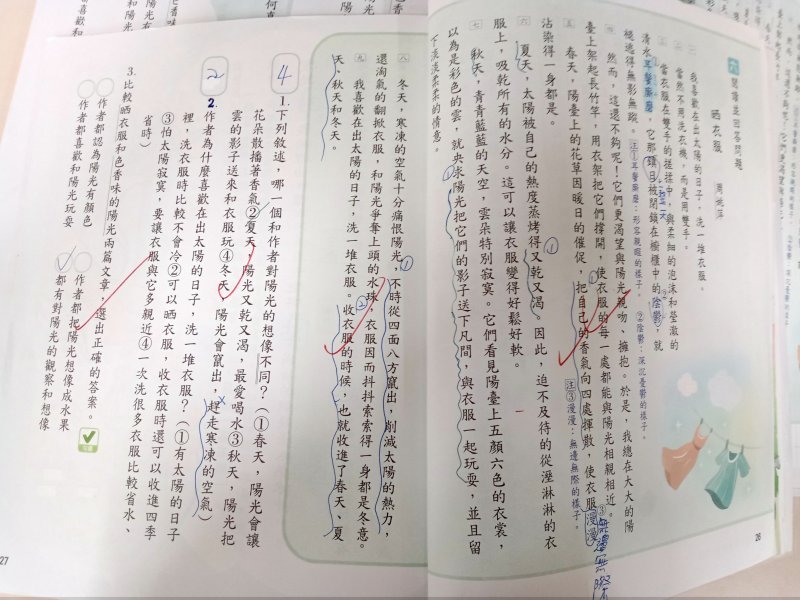 六 閱讀並回答問題
晒衣服 周姚萍
一 我喜歡在出太陽的日子，洗一堆衣服。
二 當然不用洗衣機，而是用雙手。
三 當衣服在雙手的搓揉中，與柔細的泡沫和瑩澈的
清水耳鬢廝磨，它那鎮日被閉鎖在櫥櫃中的陰鬱，就
逃得無影無蹤。
注①耳鬢廝磨：形容親暱的樣子。 ②陰鬱：深沉憂鬱的樣子。
整天
四 然而，這還不夠呢！它們更渴望與陽光親吻、擁抱。於是，我總在大大的陽
臺上架起長竹竿，用衣架把它們撐開，使衣服的每一處都能與陽光相親相近。
五 春天，陽臺上的花草因暖日的催促，把自己的香氣向四處揮散，使衣服漫漫
無邊無際
沾染得一身都是。
注③漫漫：無邊無際的樣子。
六 夏天，太陽被自己的熱度蒸烤得又乾又渴。因此，迫不及待的從溼淋淋的衣
服上，吸乾所有的水分。這可以讓衣服變得好鬆好軟。
七 秋天，青青藍藍的天空，雲朵特別寂寞。它們看見陽臺上五顏六色的衣裳，
以為是彩色的雲，就央求陽光把它們的影子送下凡間，與衣服一起玩耍，並且留
下淡淡柔柔的情意。
26
八 冬天，寒凍的空氣十分痛恨陽光，不時從四面八方竄出，削減太陽的熱力，
還淘氣的翻掀衣服，和陽光爭奪上頭的水珠，衣服因而抖抖索索得一身都是冬意。
九 我喜歡在出太陽的日子，洗一堆衣服。收衣服的時候，也就收進了春天、夏
天、秋天和冬天。
4
1. 下列敘述，哪一個和作者對陽光的想像不同？（①春天，陽光會讓
花朵散播著香氣②夏天，陽光又乾又渴，最愛喝水③秋天，陽光把
雲的影子送來和衣服玩④冬天，陽光會竄出，趕走寒凍的空氣）
2
2. 作者為什麼喜歡在出太陽的日子，洗一堆衣服？（①有太陽的日子
裡，洗衣服時比較不會冷②可以晒衣服，收衣服時還可以收進四季
③怕太陽寂寞，要讓衣服與它多親近④一次洗很多衣服比較省水、
省時）
3. 比較晒衣服和色香味的陽光兩篇文章，選出正確的答案。
作者都認為陽光有顏色
作者都把陽光想像成水果
作者都喜歡和陽光玩耍
都有對陽光的觀察和想像
27